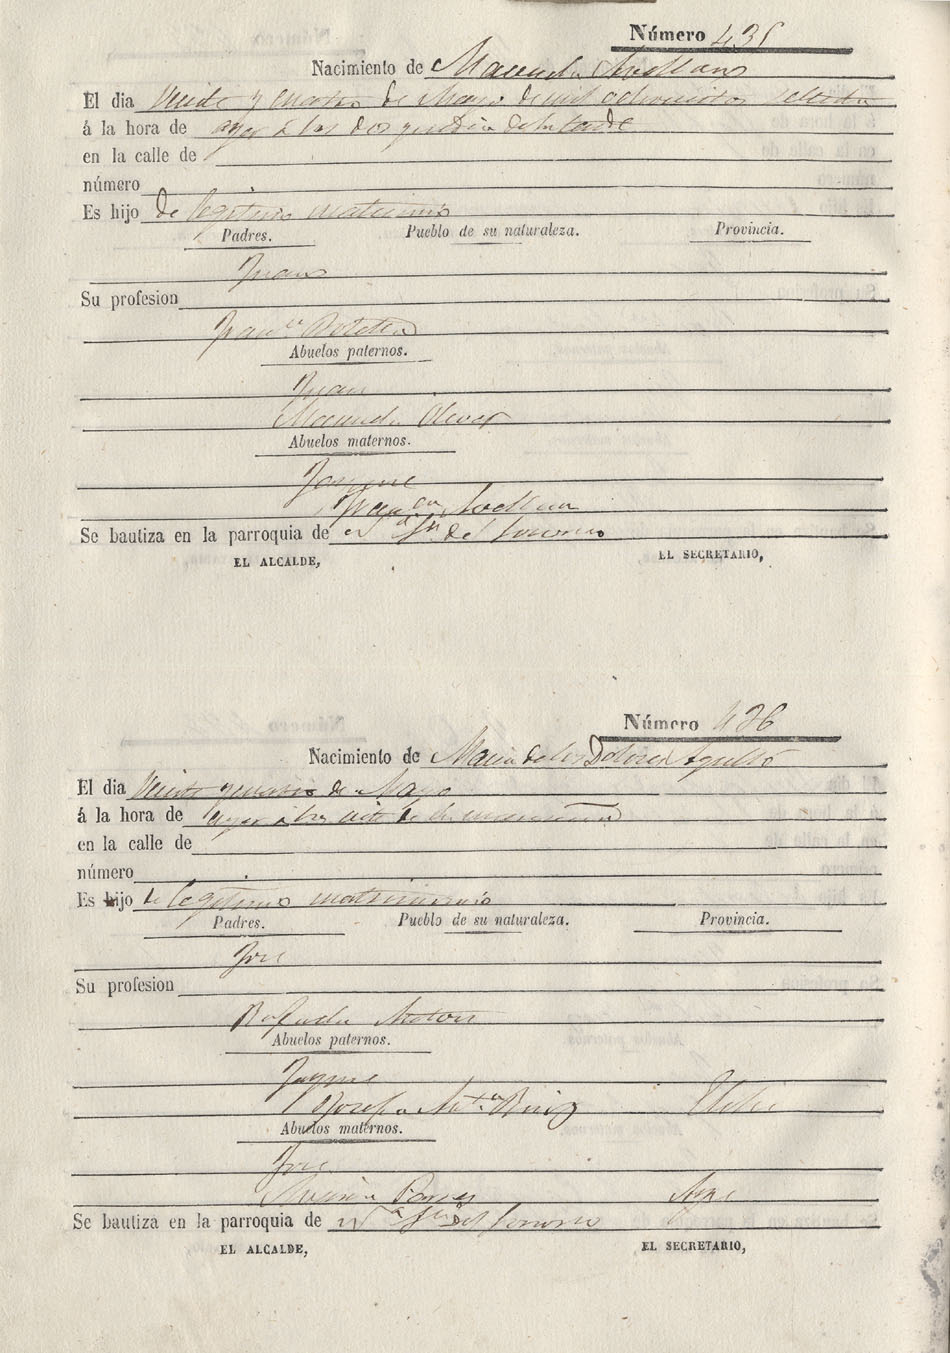 Número 435
Nacimiento de Macunda Avellans
El dia Veinte y cuatro de Mayo de mil ochocientos setenta
á la hora de ayer á las dos y media de la tarde
en la calle de
número
Es hijo de legitimo matrimonio
Padres. Pueblo de su naturaleza. Provincia.
Juan
Su profesion
Abuelos paternos.
Juan
Macunda Oliver
Abuelos maternos.
Jayme
Franca Avellan
Se bautiza en la parroquia de Nª Sª del Socorro
EL ALCALDE, EL SECRETARIO,
Número 436
Nacimiento de Maria de los Dolores Agulló
El dia Veinte y cuatro de Mayo
á la hora de ayer á las siete de la
en la calle de
número
Es hijo de legitimo matrimonio
Padres. Pueblo de su naturaleza. Provincia.
Jose
Su profesion
Rafaela Anton
Abuelos paternos.
Jayme
Josefa Mª Ruiz Elche
Abuelos maternos.
Jose
Se bautiza en la parroquia de Nª Sª del Socorro
EL ALCALDE, EL SECRETARIO,